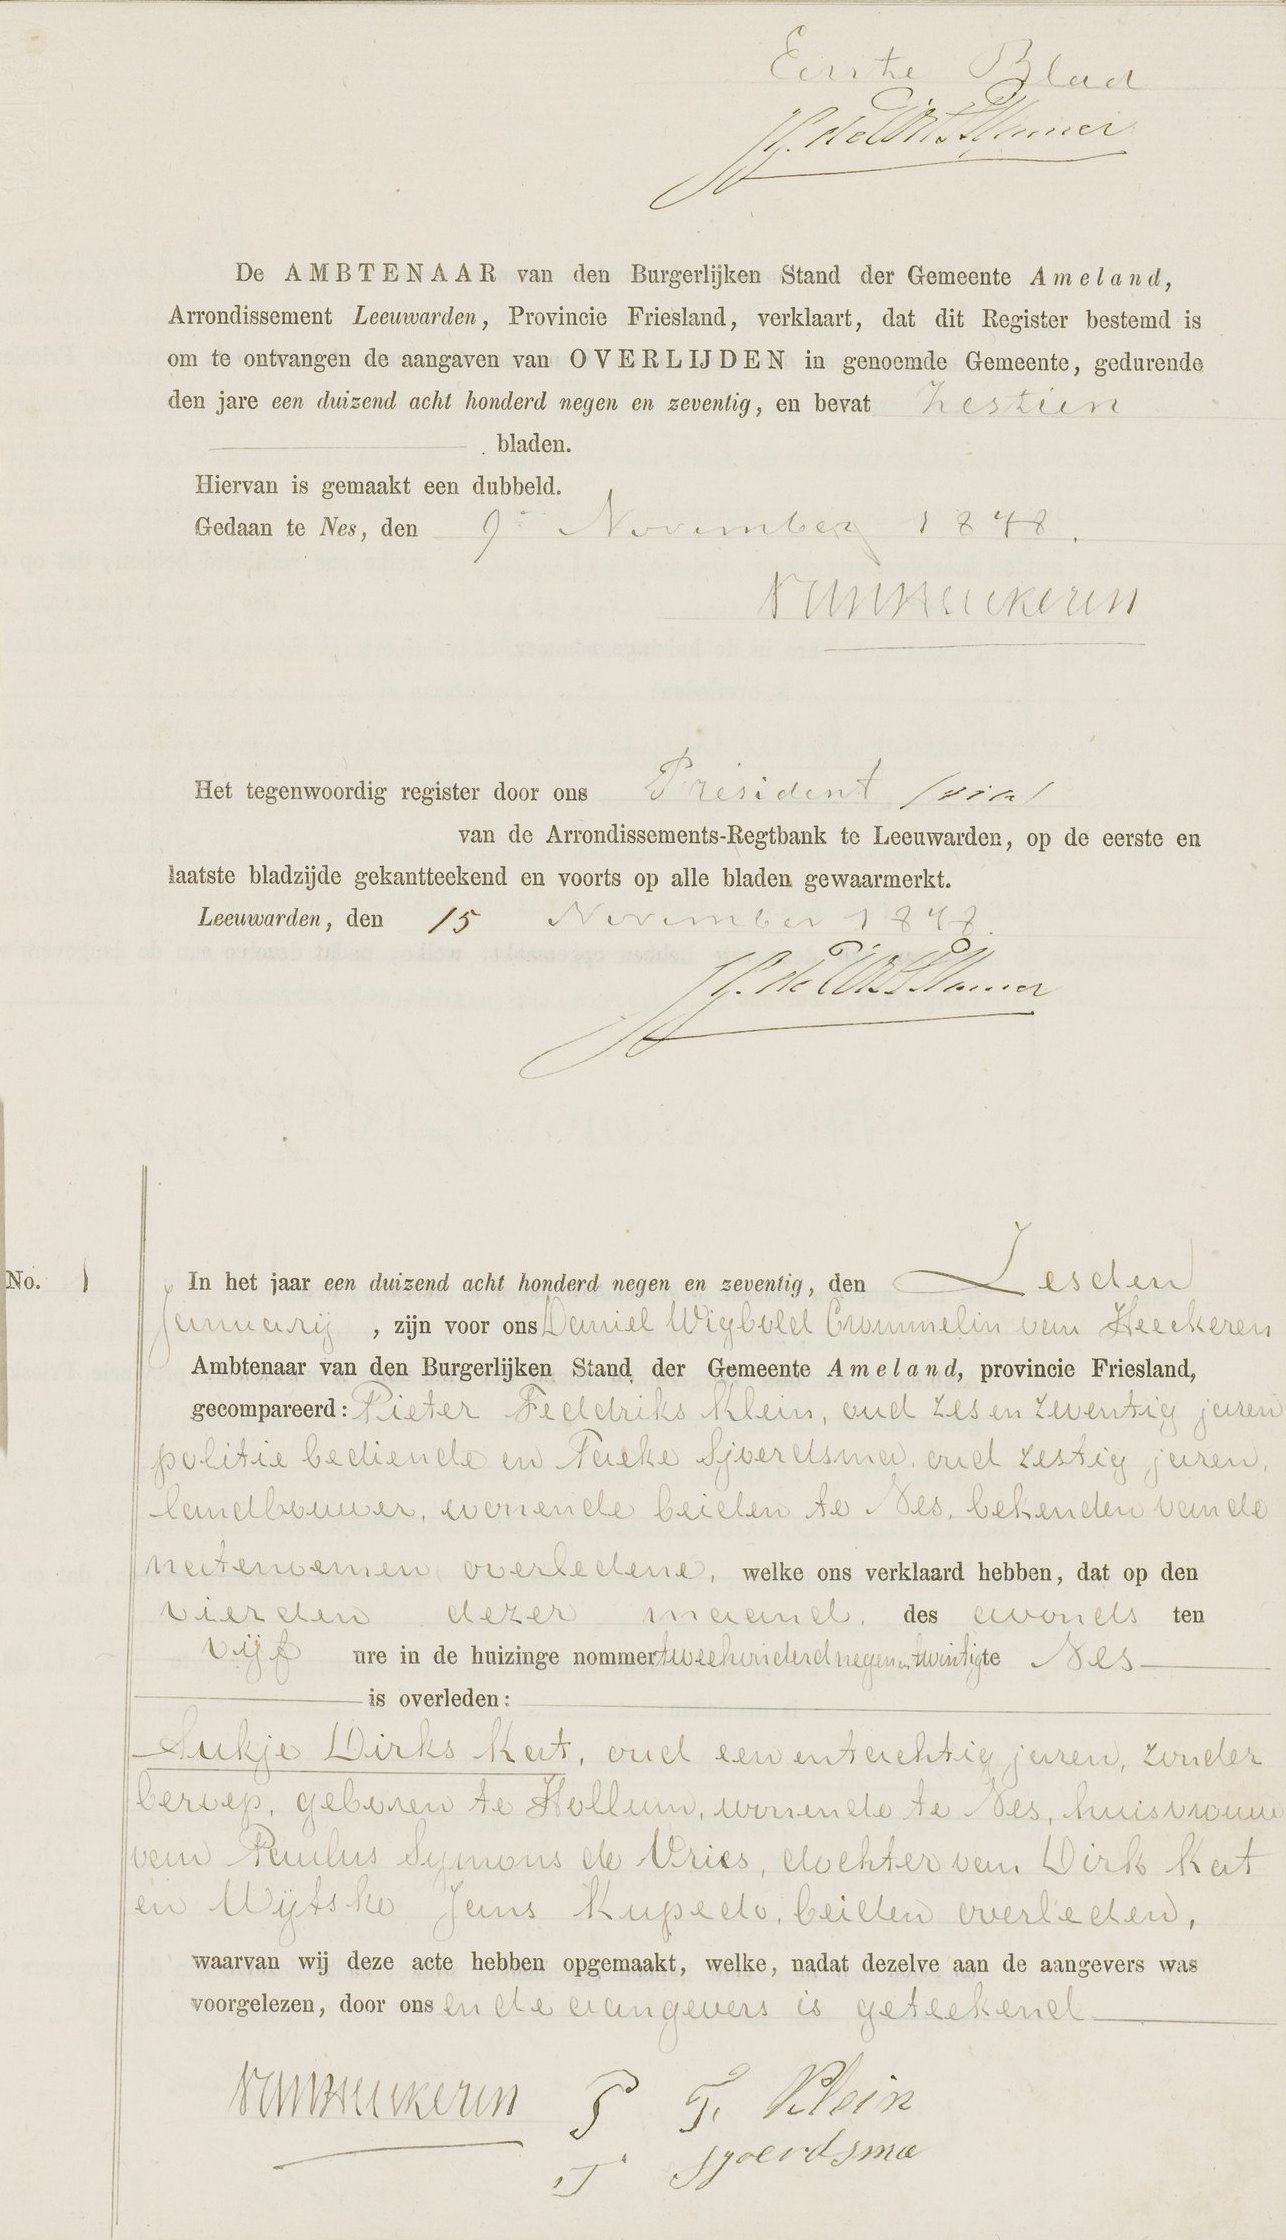 Eerste Blad
De AMBTENAAR van den Burgerlijken Stand der Gemeente Ameland,
Arrondissement Leeuwarden, Provincie Friesland, verklaart, dat dit Register bestemd is
om te ontvangen de aangaven van OVERLIJDEN in genoemde Gemeente, gedurende
den jare een duizend acht honderd negen en zeventig, en bevat Zestien
bladen.
Hiervan is gemaakt een dubbeld.
Gedaan te Nes, den 9 November 1878.
van Heeckeren
Het tegenwoordig register door ons President
van de Arrondissements-Regtbank te Leeuwarden, op de eerste en
laatste bladzijde gekantteekend en voorts op alle bladen gewaarmerkt.
Leeuwarden, den 15 November 1878.
No. 1 In het jaar een duizend acht honderd negen en zeventig, den Zesden
Januarij, zijn voor ons Daniel Wigbold Crommelin van Heeckeren
Ambtenaar van den Burgerlijken Stand der Gemeente Ameland, provincie Friesland,
gecompareerd: Pieter Feddriks Klein, oud zes en zeventig jaren
politie bediende en Taeke Sjoerdsma, oud zestig jaren,
landbouwer, wonende beiden te Nes, bekenden van de
natenoemen overledene, welke ons verklaard hebben, dat op den
vierden dezer maand, des avonds ten
vijf ure in de huizinge nommer tweehonderd negen en twintig te Nes
is overleden:
Sukje Dirks Kat, oud een en tachtig jaren, zonder
beroep, geboren te Hollum, wonende te Nes, huisvrouw
van Paulus Symons de Vries, dochter van Dirk Kat
en Wijtske Jans Kupedo, beiden overleden,
waarvan wij deze acte hebben opgemaakt, welke, nadat dezelve aan de aangevers was
voorgelezen, door ons en de aangevers is geteekend
van Heeckeren P F. Klein
T Sjoerdsma